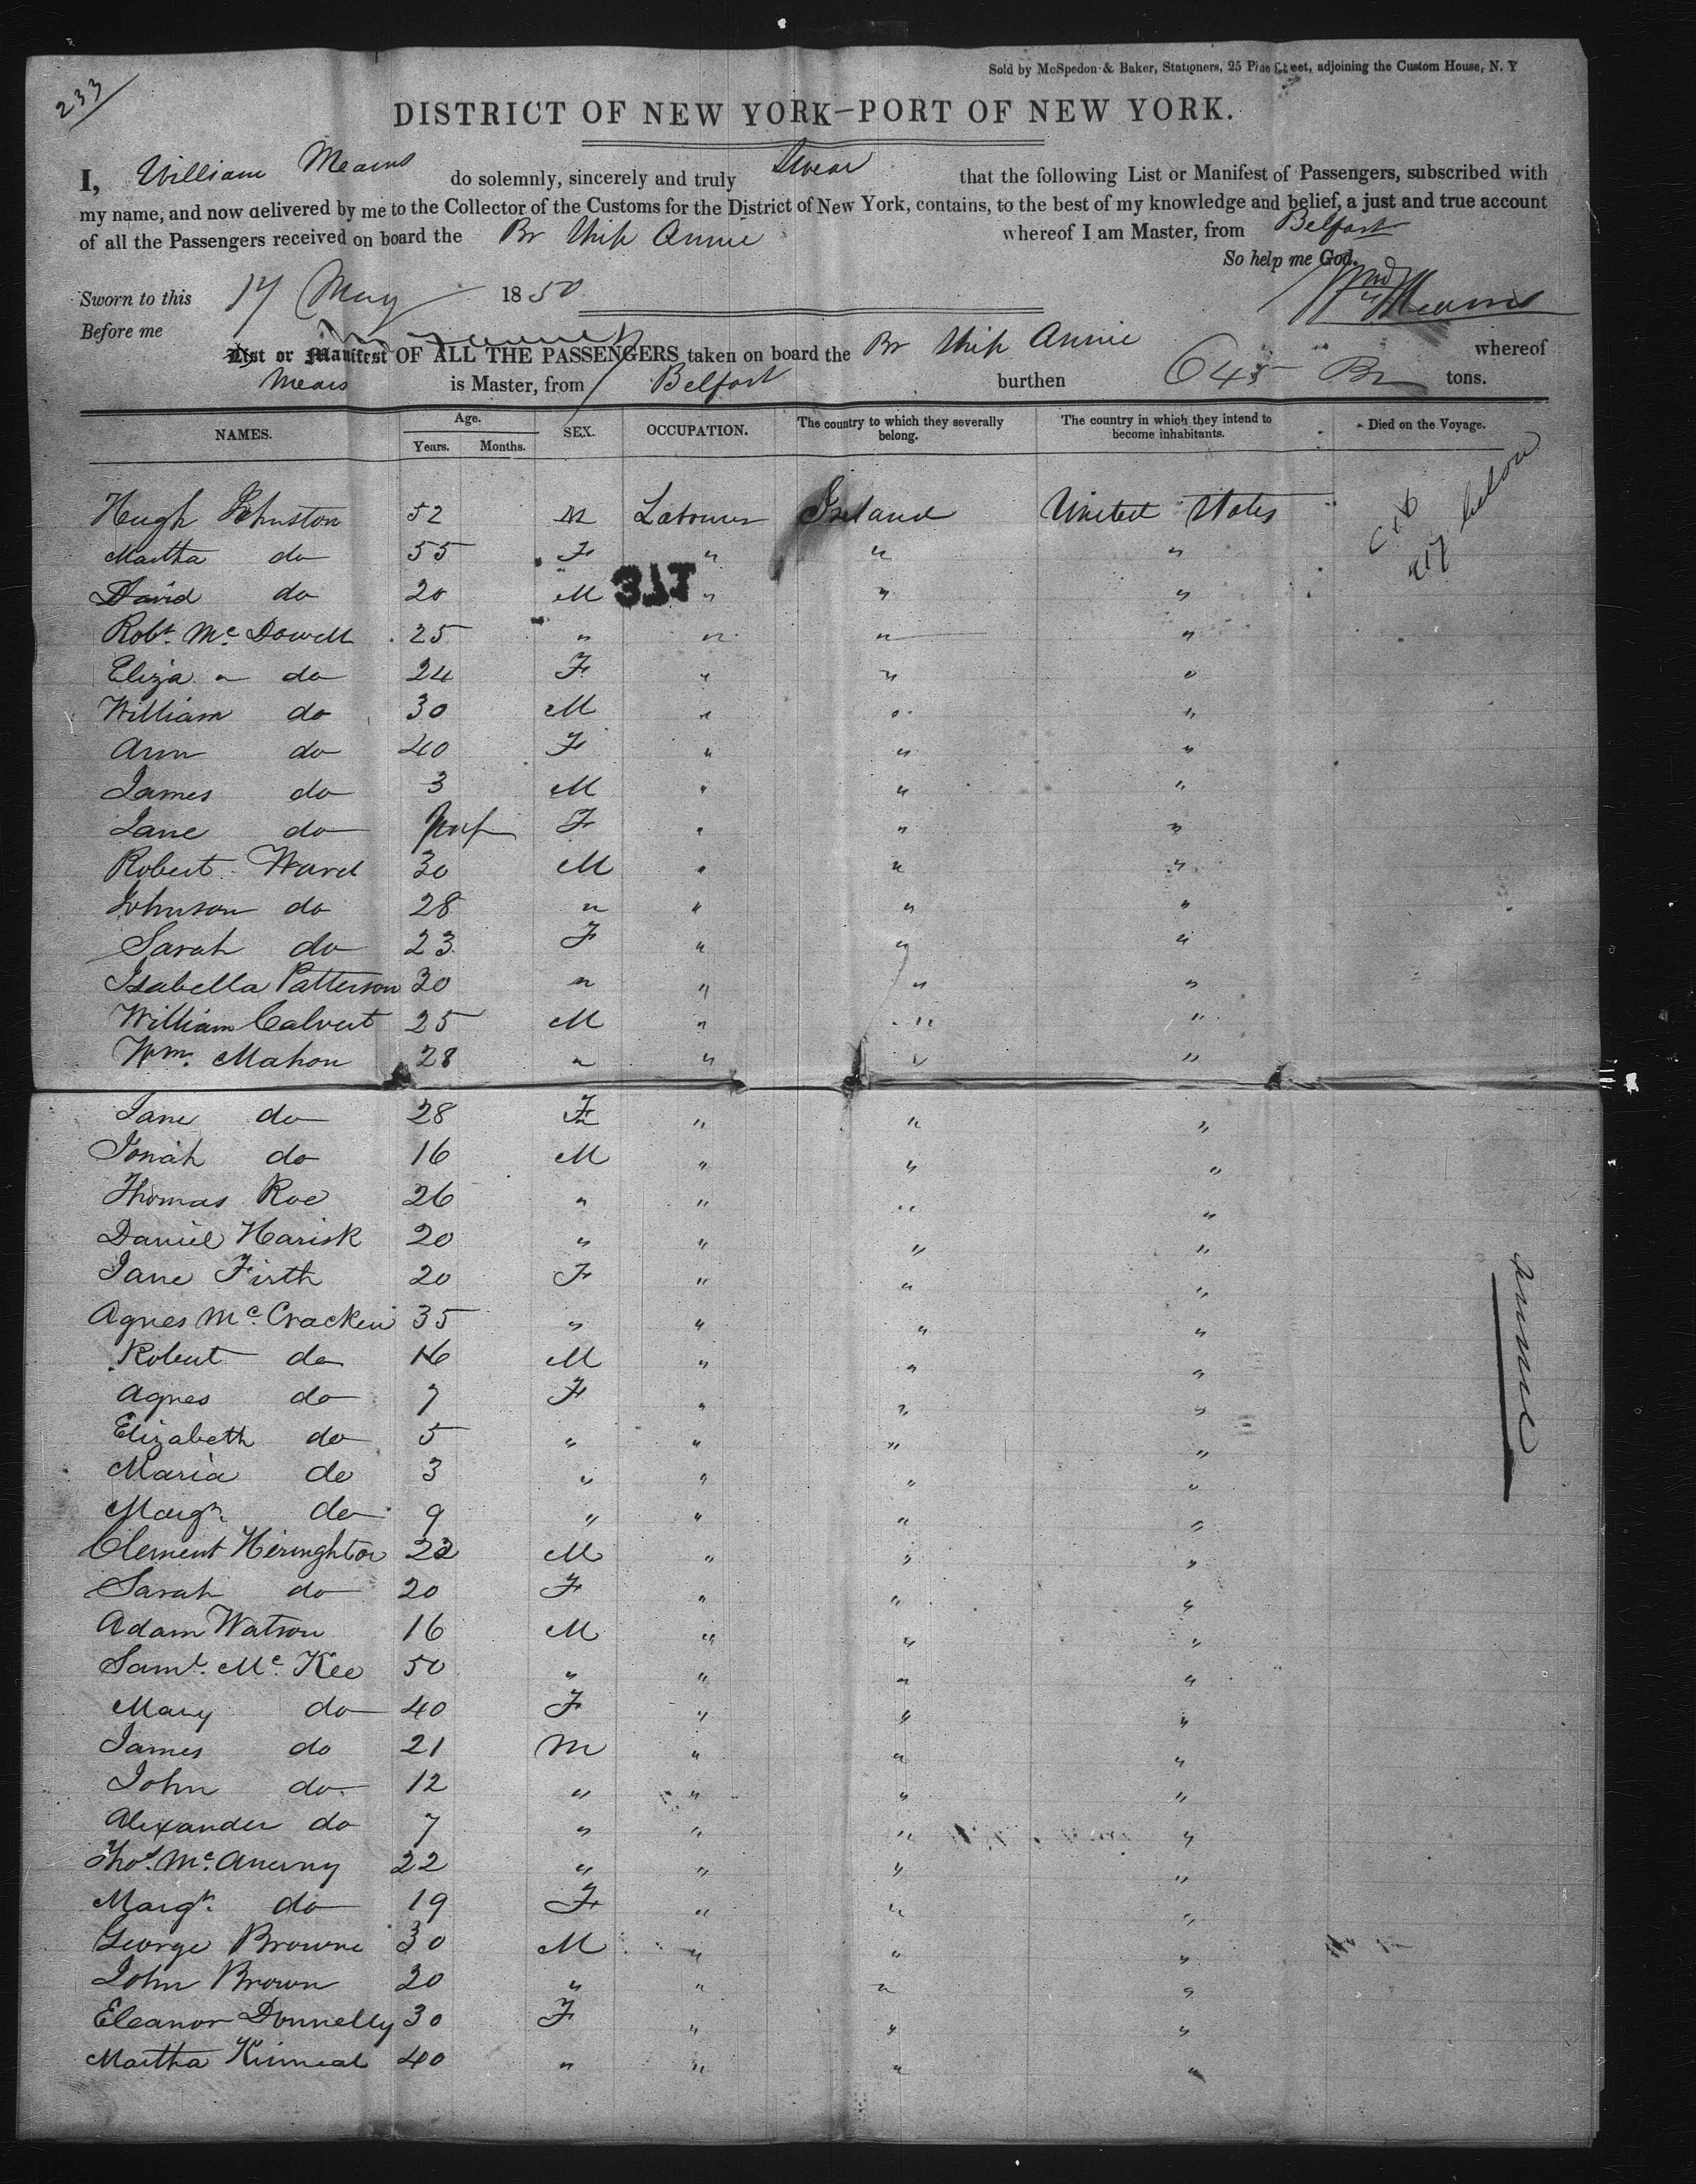 233
Sold by McSpedon & Baker, Stationers, 25 Pine Street, adjoining the Custom House, N. Y
DISTRICT OF NEW YORK-PORT OF NEW YORK.
I, William Mearns do solemnly, sincerely and truly Swear that the following List or Manifest of Passengers, subscribed with
my name, and now delivered by me to the Collector of the Customs for the District of New York, contains, to the best of my knowledge and belief, a just and true account
of all the Passengers received on board the Br Ship Annie whereof I am Master, from Belfast
So help me God.
Sworn to this 17 May 1850
Wm Mearns
Before me
List or Manifest OF ALL THE PASSENGERS taken on board the Br Ship Annie whereof
Mears is Master, from Belfast burthen 645 Br tons.
NAMES. Age. Years. Months. SEX. OCCUPATION. The country to which they severally belong. The country in which they intend to become inhabitants. Died on the Voyage.
Hugh Johnston 52 M Labourer Ireland United States
Martha do 55 F " " "
David do 20 M " " "
Robt. Mc. Dowell 25 " " " "
Eliza do 24 F " " "
William do 30 M " " "
Ann do 40 F " " "
James do 3 M " " "
Jane do Inf F " " "
Robert Ward 30 M " " "
Johnson do 28 " " " "
Sarah do 23 F " " "
Isabella Patterson 30 " " " "
William Calvert 25 M " " "
Wm. Mahon 28 " " " "
Jane do 28 F " " "
Jonah do 16 M " " "
Thomas Roe 26 " " " "
Daniel Harisk 20 " " " "
Jane Firth 20 F " " "
Agnes Mc. Cracken 35 " " " "
Robert do 16 M " " "
Agnes do 7 F " " "
Elizabeth do 5 " " " "
Maria do 3 " " " "
Margt. do 9 " " " "
Clement Heringhton 22 M " " "
Sarah do 20 F " " "
Adam Watson 16 M " " "
Saml. Mc. Kee 50 " " " "
Mary do 40 F " " "
James do 21 M " " "
John do 12 " " " "
Alexander do 7 " " " "
Thos. Mc. Anerny 22 " " " "
Margt. do 19 F " " "
George Browne 30 M " " "
John Brown 20 " " " "
Eleanor Donnelly 30 F " " "
Martha Kinnead 40 " " " "
below
Annie